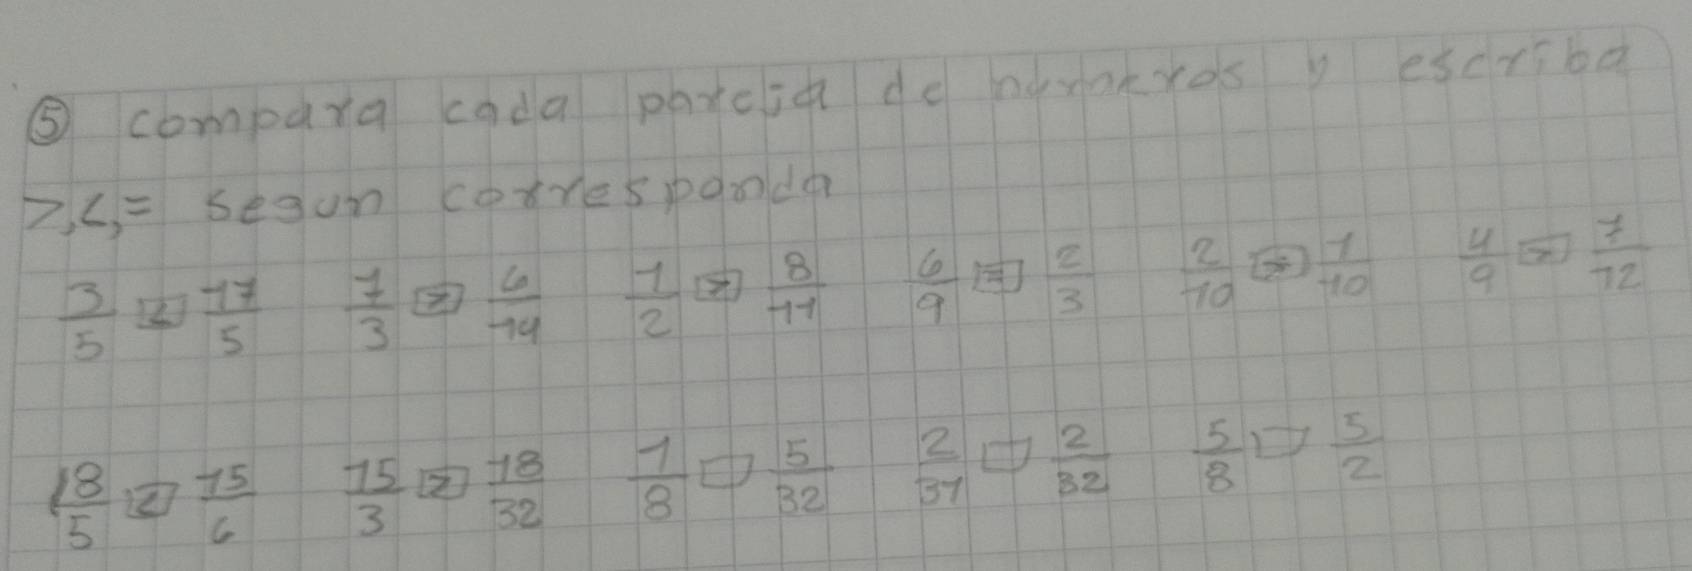 ⑤ compara cada pareja de numeros y escriba
>,<,= segun corresponda
3/5 < 17/5 7/3 > 6/14 1/2 > 8/11 6/9 = 2/3 2/10 > 1/10 4/9 > 7/12
18/5 < 15/6 15/3 > 18/32 1/8 □ 5/32 2/31 □ 2/32 5/8 □ 5/2